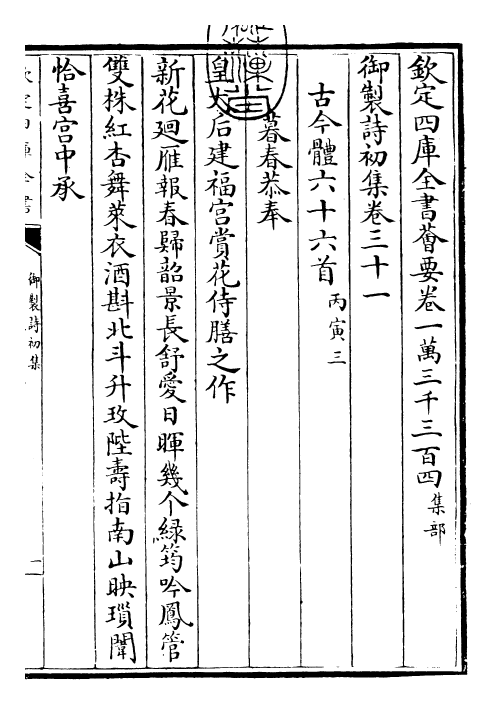 欽定四庫全書薈要卷一萬三千三百四集部
御製詩初集卷三十一
古今體六十六首丙寅三
暮春恭奉
皇太后建福宫賞花侍膳之作
新花廻雁報春歸韶景長舒愛日暉幾个緑筠吟鳳管
雙株紅杏舞萊衣酒斟北斗升玫陛壽指南山映瑣闈
恰喜宫中承
御製詩初集